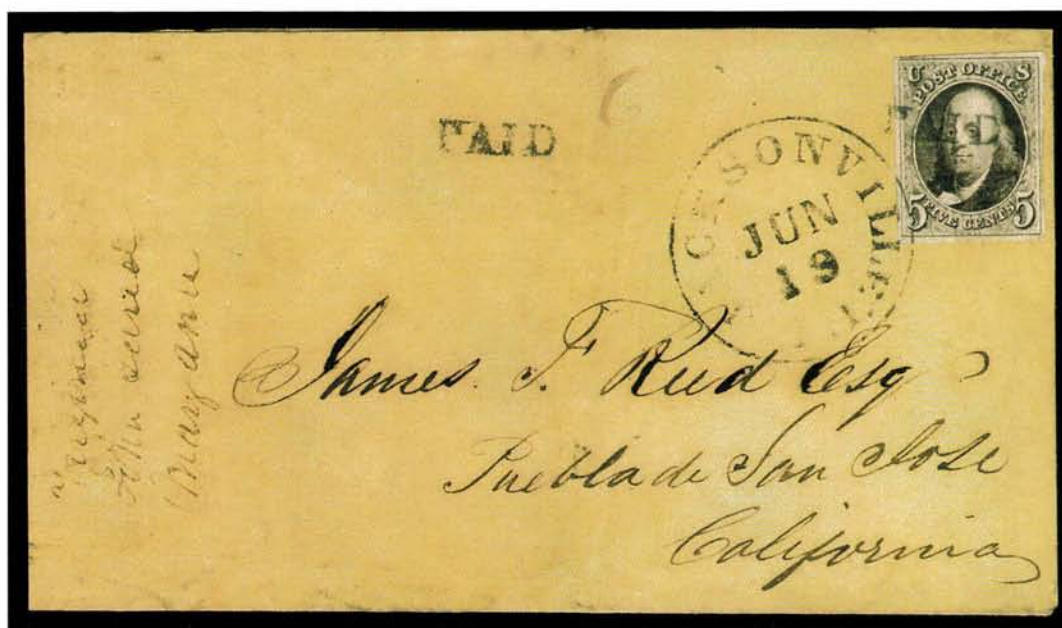 PAID
U S
POST OFFICE
PAID
5 FIVE CENTS 5
JACKSONVILLE
JUN
19
James. F. Reed Esq
Puebla de San Jose
California